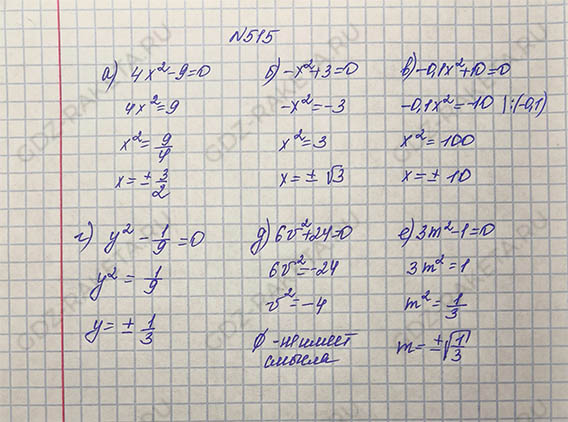 №515
а) 4x²-9=0
4x²=9
x²=9/4
x=±3/2
б) -x²+3=0
-x²=-3
x²=3
x=±√3
в) -0,1x²+10=0
-0,1x²=-10 |:(-0,1)
x²=100
x=±10
г) y²-1/9=0
y²=1/9
y=±1/3
д) 6v²+24=0
6v²=-24
v²=-4
∅ - не имеет
смысла
е) 3m²-1=0
3m²=1
m²=1/3
m=±√1/3
GDZ-RAKETA.RU